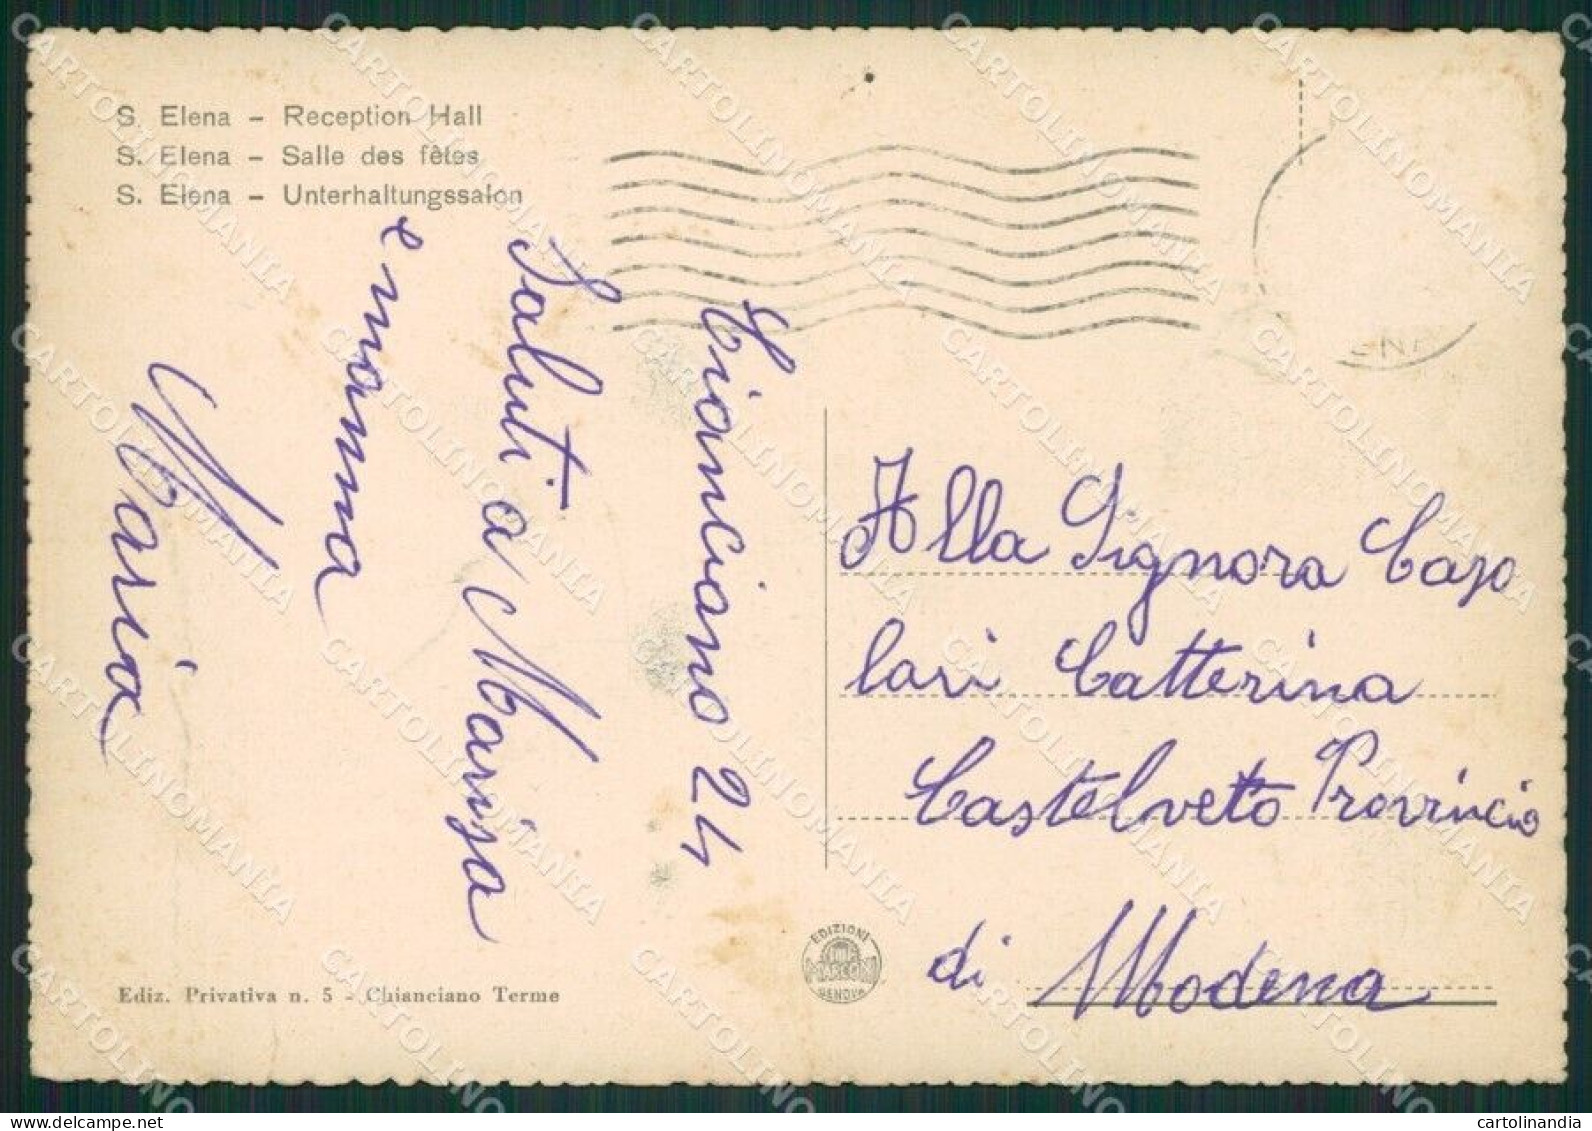 S. Elena – Reception Hall
S. Elena – Salle des fêtes
S. Elena – Unterhaltungssalon
Cianciano 24
Saluti a Marisa
e mamma
Maria
Alla Signora Capo
lari Catterina
Castelveto Provincia
di Modena
EDIZIONI
MARCONI
GENOVA
Ediz. Privativa n. 5 - Chianciano Terme
CARTOLINOMANIA
cartolinandia